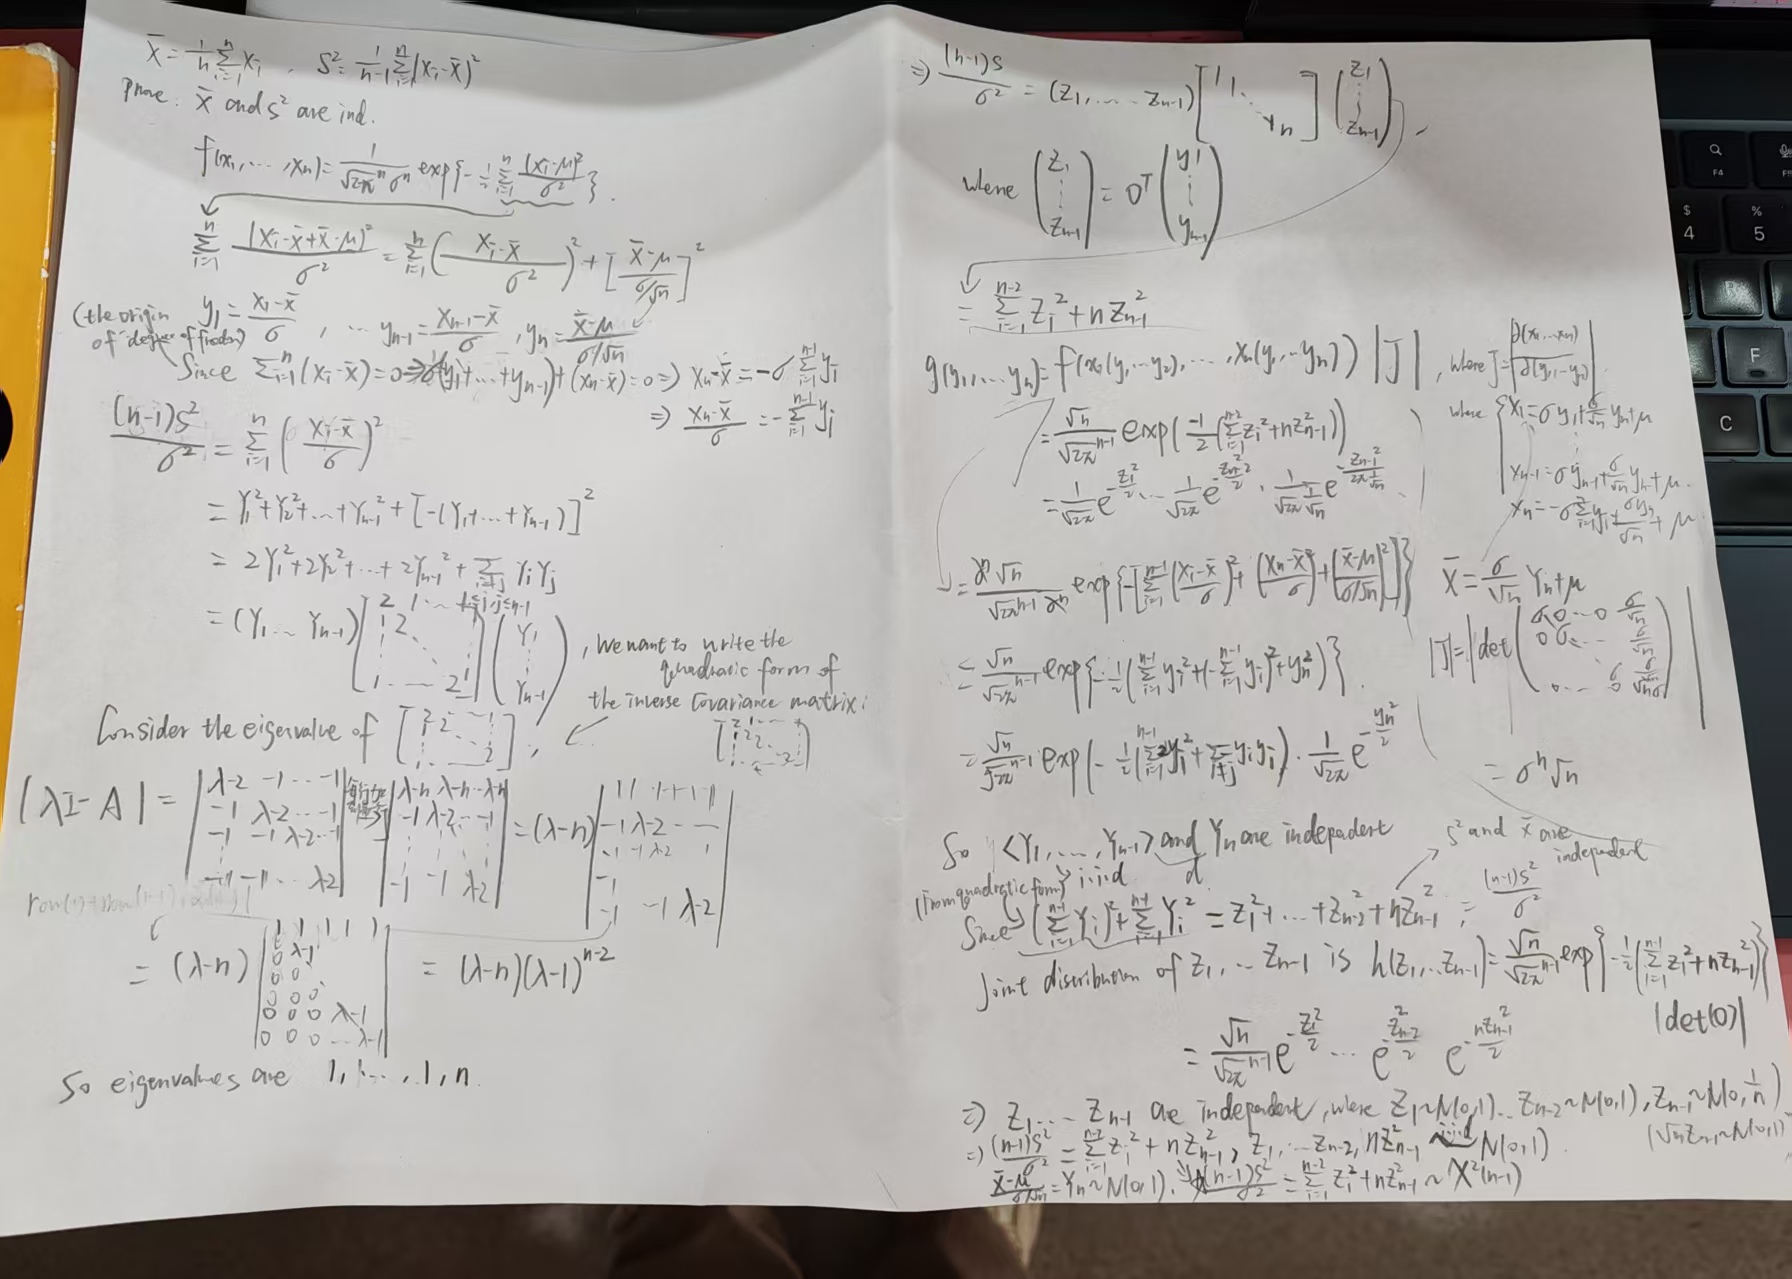 X̄ = 1/n Σ_{i=1}^n X_i , S² = 1/(n-1) Σ_{i=1}^n (X_i - X̄)²
Prove. X̄ and S² are ind.
f(x_1, ..., x_n) = 1/(√2π^n σ^n) exp{-1/2 Σ_{i=1}^n (x_i-μ)²/σ²}.
Σ_{i=1}^n (X_i - X̄ + X̄ - μ)²/σ² = Σ_{i=1}^n ((X_i - X̄)/σ²)² + [(X̄-μ)/(σ/√n)]²
(the origin of "degree of freedom)
y_1 = (X_1-X̄)/σ , ... y_{n-1} = (X_{n-1}-X̄)/σ , y_n = (X̄-μ)/(σ/√n)
Since Σ_{i=1}^n (X_i-X̄) = 0 ⇒ σ(y_1+...+y_{n-1}) + (X_n-X̄) = 0 ⇒ X_n-X̄ = -σ Σ_{i=1}^{n-1} y_i
⇒ (X_n-X̄)/σ = -Σ_{i=1}^{n-1} y_i
(n-1)S²/σ² = Σ_{i=1}^n ((X_i-X̄)/σ)²
= Y_1²+Y_2²+...+Y_{n-1}² + [-(Y_1+...+Y_{n-1})]²
= 2Y_1²+2Y_2²+...+2Y_{n-1}² + Σ_{i≠j} Y_iY_j
1≤i,j≤n-1
= (Y_1 ... Y_{n-1}) [2 1 ... 1 2 ... 1 ... 2] (Y_1 ⋮ Y_{n-1}) , we want to write the
quadratic form of
the inverse covariance matrix:
Consider the eigenvalue of [2 ... 1 2 ... 2],
|λI - A| = |λ-2 -1 ... -1; -1 λ-2 ... -1; -1 -1 λ-2 ... -1; -1 -1 ... λ-2| = |λ-n λ-n ... λ-n; -1 λ-2 ... -1; -1 -1 λ-2| = (λ-n) |1 1 1 1 1 1; -1 λ-2 ...; -1 -1 λ-2 1; -1; -1 -1 λ-2|
= (λ-n) |1 1 1 1 1; 0 λ-1; 0 0; 0 0 0; 0 0 0 λ-1; 0 0 0 ... λ-1| = (λ-n)(λ-1)^{n-2}
So eigenvalues are 1, 1..., 1, n.
⇒ (n-1)S/σ² = (Z_1, ... Z_{n-1}) [1 1 ⋱ 1 n] (Z_1 ⋮ Z_{n-1}) ,
where (Z_1 ⋮ Z_{n-1}) = O^T (y_1 ⋮ y_{n-1})
= Σ_{i=1}^{n-2} Z_i² + nZ_{n-1}²
g(y_1, ... y_n) = f(x_1(y_1...y_n), ..., x_n(y_1...y_n)) |J| , where J = |∂(x_1...x_n)/∂(y_1...y_n)|
where { x_1 = σy_1 + σ/√n y_n + μ
x_{n-1} = σy_{n-1} + σ/√n y_n + μ.
x_n = -σΣy_i + σy_n/√n + μ
= √n/√2π^{n-1} exp(-1/2 (Σ_{i=1}^{n-2} Z_i² + nZ_{n-1}²))
= 1/√2π e^{-Z_1²/2} ... 1/√2π e^{-Z_{n-2}²/2} · 1/(√2π 1/√n) e^{-Z_{n-1}²/(2π 1/√n)}
= √n/(√2π^{n-1} σ^n) exp{-[Σ_{i=1}^{n-1} ((X_i-X̄)/σ)² + ((X_n-X̄)/σ)² + ((X̄-μ)/(σ/√n))²]}
X̄ = σ/√n Y_n + μ
|J| = |det(σ 0 ... 0 σ/√n; 0 σ ... σ/√n; 0 ... σ σ/√n)|
= √n/√2π^{n-1} exp{-1/2 (Σ_{i=1}^{n-1} y_i² + (-Σ_{i=1}^{n-1} y_i)² + y_n²)}.
= √n/√2π^{n-1} exp(-1/2 (Σ_{i=1}^{n-1} 2y_i² + Σ_{i≠j} y_iy_j)) · 1/√2π e^{-y_n²/2}
= σ^n √n
So <Y_1, ..., Y_{n-1}> and Y_n are indepedent
S² and X̄ are independent
(from quadratic form) i.i.d d.
Since (Σ_{i=1}^{n-1} Y_i)² + Σ_{i=1}^{n-1} Y_i² = Z_1² + ... + Z_{n-2}² + nZ_{n-1}² = (n-1)S²/σ²
Joint discribution of Z_1, ... Z_{n-1} is h(Z_1, ... Z_{n-1}) = √n/√2π^{n-1} exp{-1/2 (Σ_{i=1}^{n-1} Z_i² + nZ_{n-1}²)} |det(O)|
= √n/√2π^{n-1} e^{-Z_1²/2} ... e^{-Z_{n-2}²/2} e^{-nZ_{n-1}²/2}
⇒ Z_1 ... Z_{n-1} are independent, where Z_1~N(0,1) ... Z_{n-2}~N(0,1), Z_{n-1}~N(0, 1/n)
(√n Z_{n-1}~N(0,1))
⇒ (n-1)S²/σ² = Σ_{i=1}^{n-2} Z_i² + nZ_{n-1}², Z_1, ... Z_{n-2}, nZ_{n-1}² iid N(0,1).
(X̄-μ)/(σ/√n) = Y_n ~ N(0,1). (n-1)S²/σ² = Σ_{i=1}^{n-2} Z_i² + nZ_{n-1}² ~ χ²(n-1)